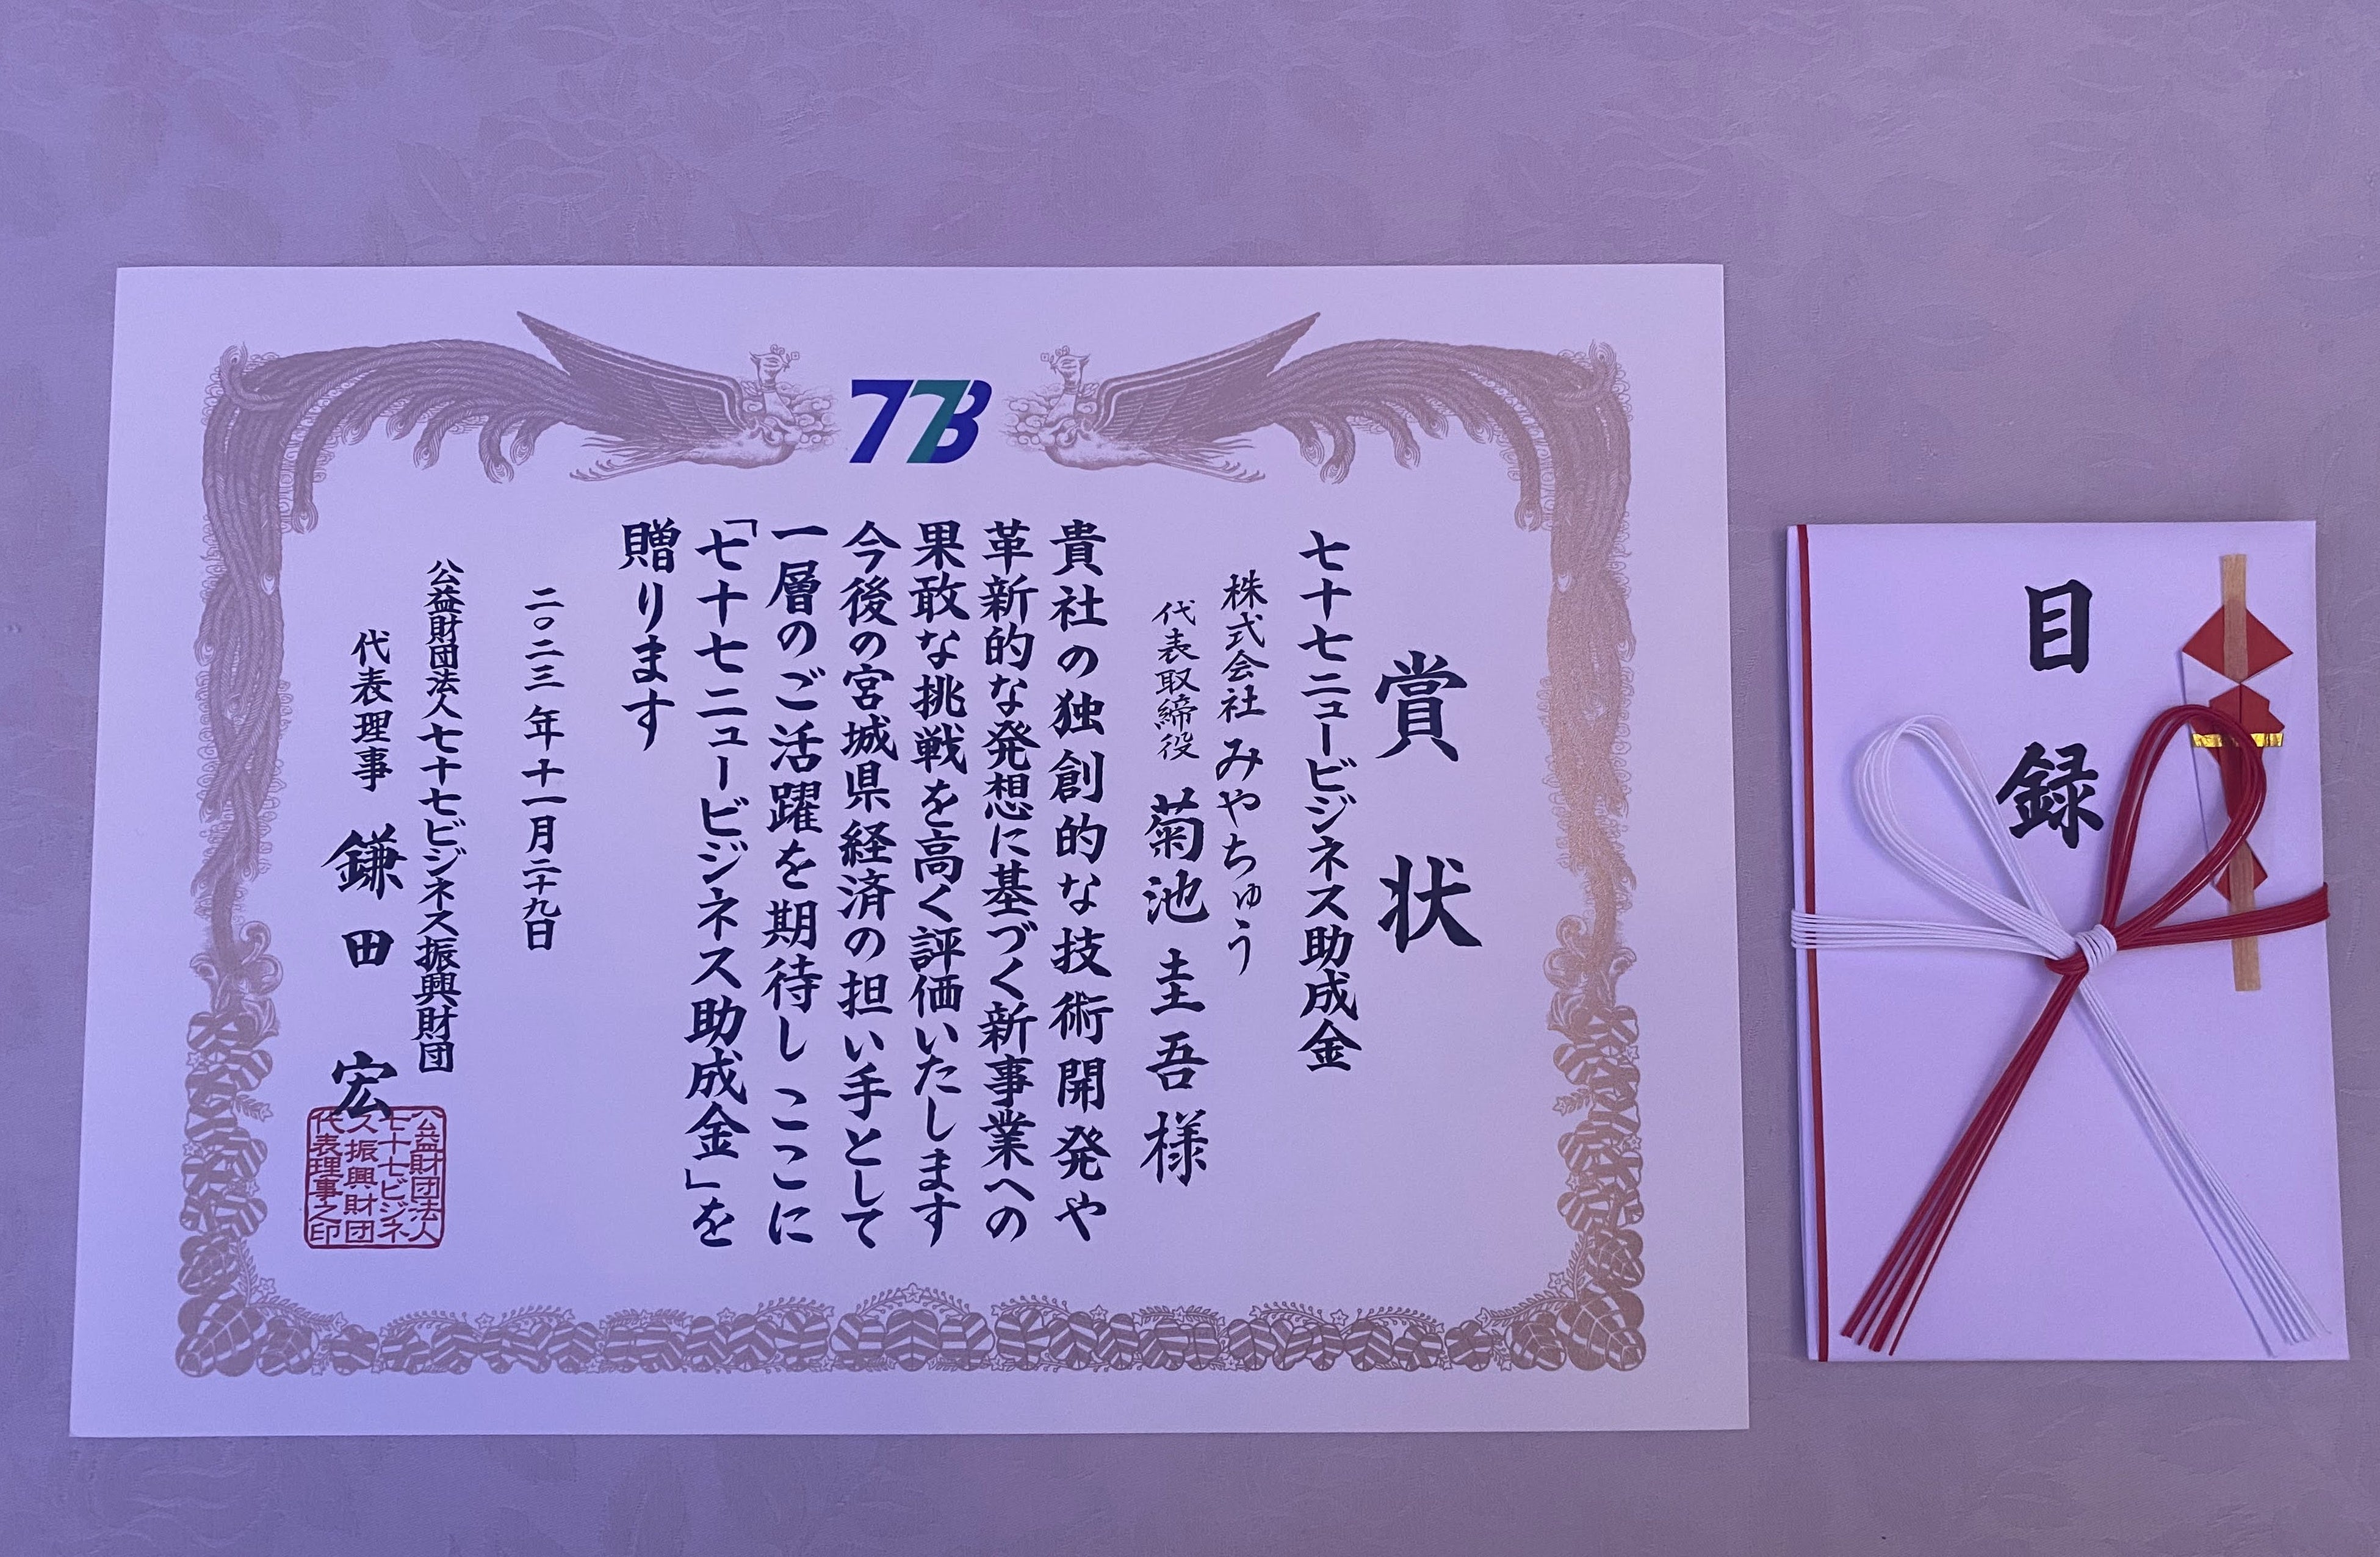 77B
賞状
七十七ニュービジネス助成金
株式会社 みやちゅう
代表取締役 菊池 圭吾 様
貴社の独創的な技術開発や
革新的な発想に基づく新事業への
果敢な挑戦を高く評価いたします
今後の宮城県経済の担い手として
一層のご活躍を期待し ここに
「七十七ニュービジネス助成金」を
贈ります
二〇二三年十一月二十九日
公益財団法人七十七ビジネス振興財団
代表理事 鎌田 宏
公益財団法人
七十七ビジネ
ス振興財団
代表理事之印
目録